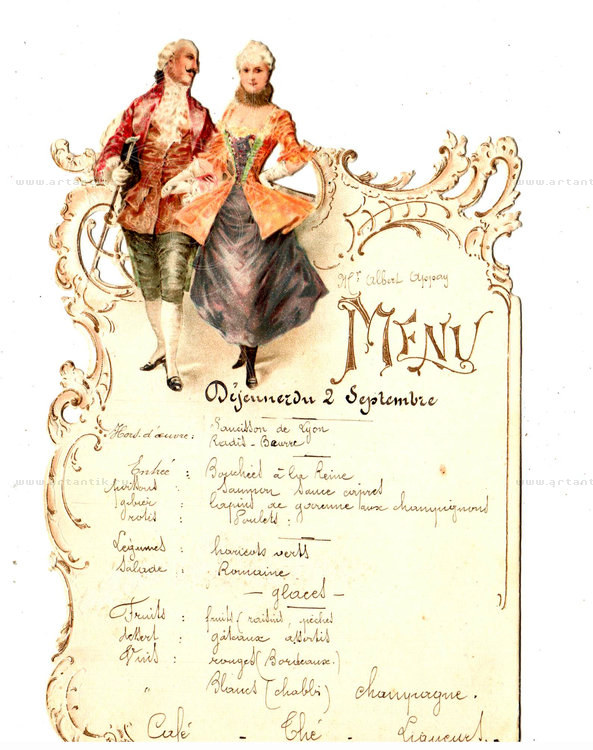 www.artantik
www.artant
Mr Albert Appay
MENU
Déjeuner du 2 Septembre
Hors-d'œuvre : Saucisson de Lyon
Radis - Beurre
Entrée : Bouchées à la Reine
poissons : Saumon sauce câpres
gibier : lapins de garenne aux champignons
rotis : Poulets :
Légumes : haricots verts
Salade : Romaine
- glaces -
Fruits : fruits (raisins, pêches
dessert : gâteaux assortis
Vins : rouges (Bordeaux.)
" Blancs (chablis) champagne.
Café - Thé - Liqueurs.